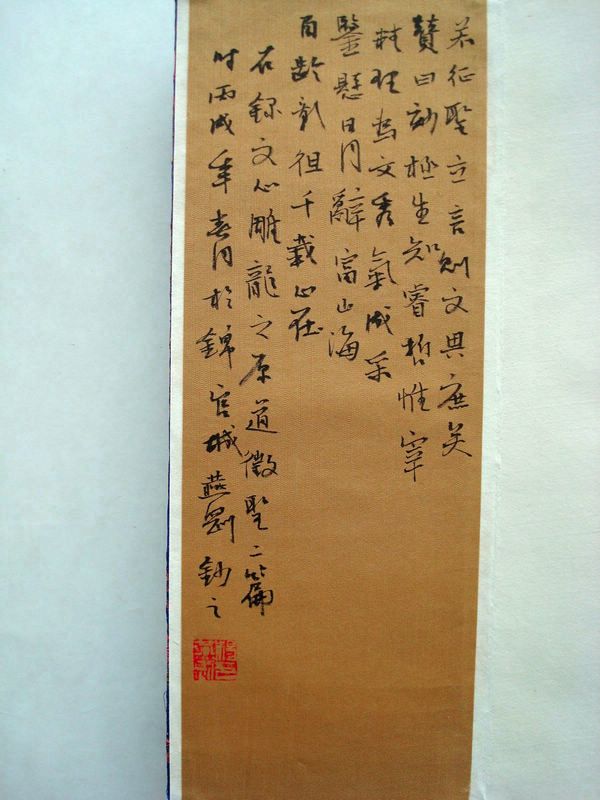 若征聖立言則文其庶矣
贊曰妙極生知睿哲惟宰
精理為文秀氣成采
鑒懸日月辭富山海
百齡影徂千載心在
右錄文心雕龍之原道徵聖二篇
時丙戌年春月於錦官城燕剛鈔之